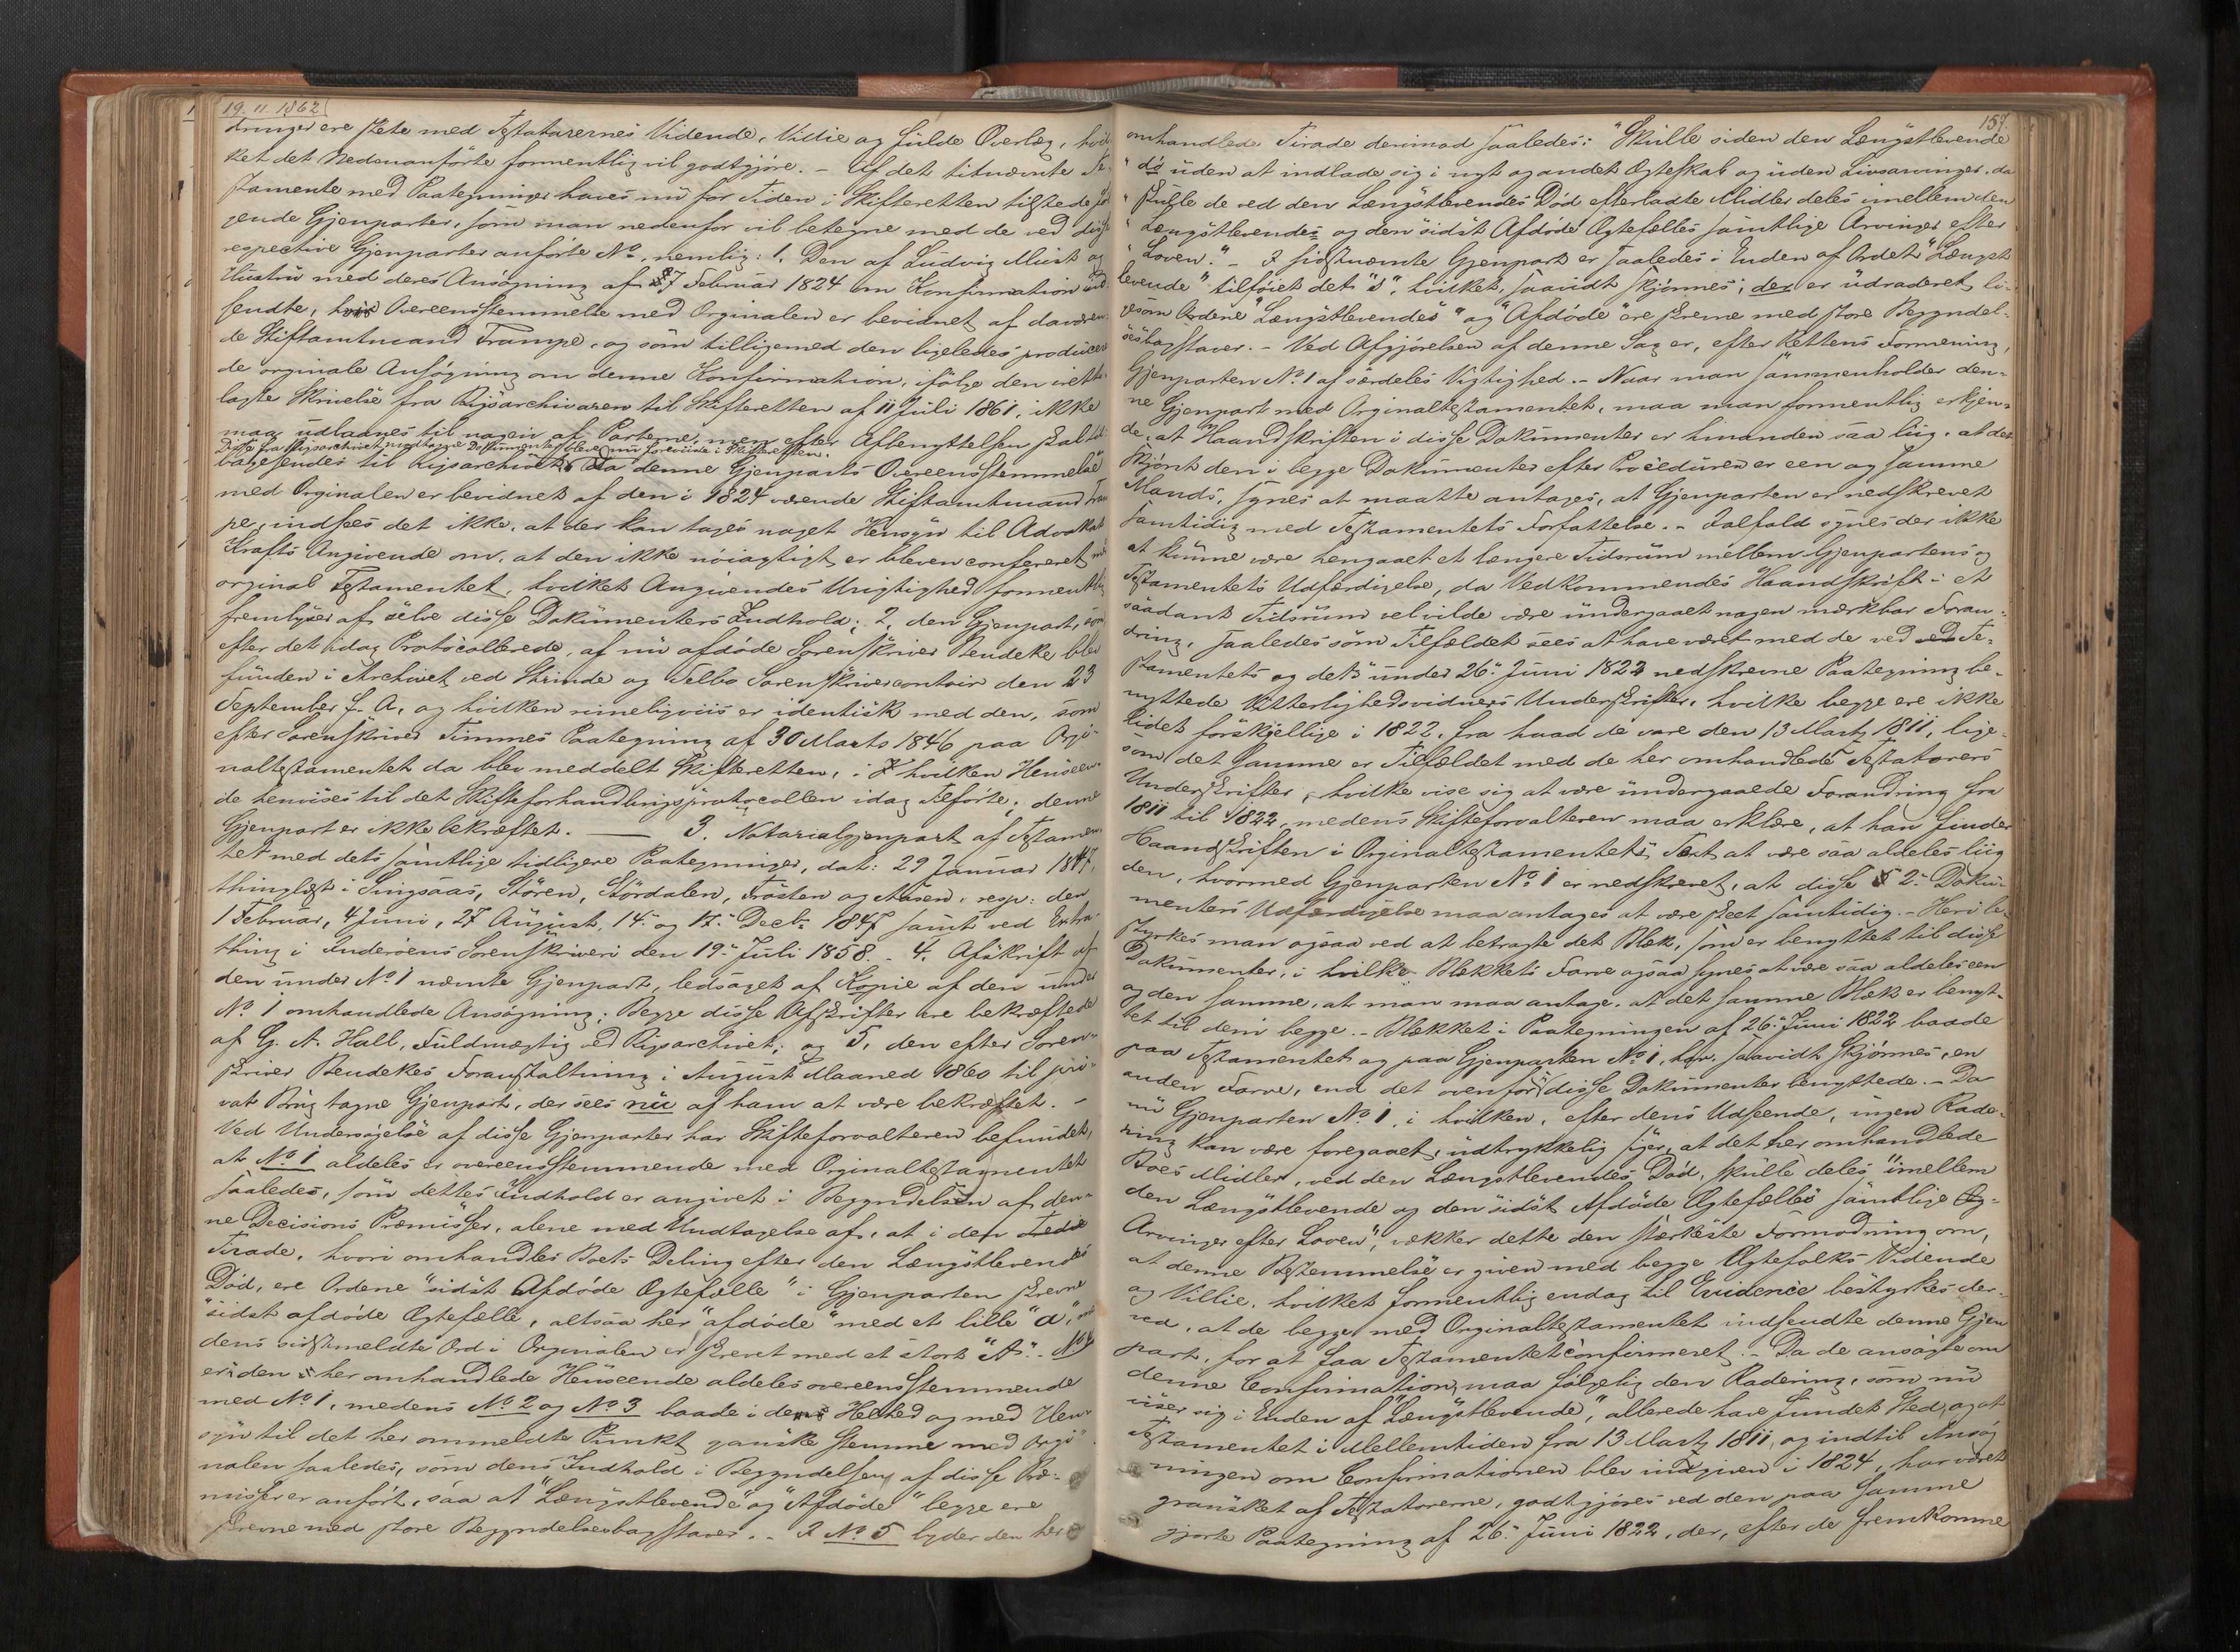 19.11.1862
dringer ere skete med Testatorernes Vidende, Villie og fulde Overlæg, hvil-
ket det nedenanførte formentlig vil godtgjøre. – Af det titnævnte Te-
stamente med Paategninger haves nu for Tiden i Skifteretten tilstede føl-
gende Gjenparter, som man nedenfor vil betegne med de ved disse
respective Gjenparter anførte No, nemlig: 1, Den af Ludvig Must og
Hustru med deres Ansøgning af 27 Februar 1824 om Konfirmation ind-
sendte, hvis Overeensstemmelse med Orginalen er bevidnet af daværen-
de Stiftamtmand Trampe, og som tilligemed den ligeledes producere-
de orginale Ansøgning om denne Konfirmation, ifølge den irette-
lagte Skrivelse fra Rigsarchivaren til Skifteretten af 11 Juli 1861, ikke
maa udlaanes til nogen af Parterne, men efter Afbenyttelsen skal til-
Disse fra Rigsarchivet modtagne Dokumenter bleve nu foreviste i Skifteretten.
bagesendes til Rigsarchivet. Da denne Gjenparts Overeensstemmelse
med Orginalen er bevidnet af den i 1824 værende Stiftamtmand Tram-
pe, indsees det ikke, at der kan tages noget Hensyn til Advokat
Krafts Angivende om, at den ikke nøiagtigt er bleven confereret med
orginal Testamentet, hvilket Angivendes Urigtighed formentlig
fremlyser af selve disse Dokumenters Indhold; 2, den Gjenpart, som
efter det idag Protocollerede, af nu afdøde Sorenskriver Bendeke blev
funden i Archivet ved Strinde og Selbo Sorenskrivercontoir den 23
September f. A. og hvilken rimeligviis er identisk med den, som
efter Sorenskriver Timmes Paategning af 30 Marts 1846 paa Orgi-
naltestamentet da blev meddelt Skifteretten, i hvilken Henseen-
de henvises til det Skifteforhandlingsprotocollen idag Tilførte; denne
Gjenpart er ikke bekræftet. — 3. Notarialgjenpart af Testamen-
tet med dets samtlige tidligere Paategninger, dat: 29 Januar 1847,
thinglæst i Singsaas, Støren, Stördalen, Frosten og Aasen, resp: den
1 Februar, 4 Juni, 27 August, 14. og 17. Decbr 1847 samt ved Extra-
thing i Inderøens Sorenskriveri den 19. Juli 1858. – 4. Afskrift af
den under No 1 nævnte Gjenpart, ledsaget af Kopie af den under
No 1 omhandlede Ansøgning; Begge disse Afskrifter ere bekræftede
af G. A. Hall, Fuldmægtig ved Rigsarchivet; og 5, den efter Soren-
skriver Bendekes Foranstaltning i August Maaned 1860 til pri-
vat Brug tagne Gjenpart, der sees nu af ham at være bekræftet. –
Ved Undersøgelse af disse Gjenparter har Skifteforvalteren befundet,
at No 1 aldeles er overeensstemmende med Orginaltestamentet
saaledes, som dettes Indhold er angivet i Begyndelsen af den-
ne Decisions Præmisser, alene med Undtagelse af, at i den Tredie
Tirade, hvori omhandles Boets Deling efter den Længstlevendes
Død, ere Ordene "sidst Afdøde Ægtefælle" i Gjenparten skrevne
"sidst afdøde Ægtefælle, altsaa her "afdøde" med et lille "a", me-
dens sidstmeldte Ord i Orginalen er skrevet med et stort "A". – No 4
er i den her omhandlede Henseende aldeles overeensstemmende
med No 1, medens No 2 og No 3 baade i deres Helhed og med Hen-
syn til det her ommeldte Punkt ganske stemme med Orgi-
nalen saaledes, som dens Indhold i Begyndelsen af disse Præ-
misser er anført, saa at "Længstlevende" og "Afdøde" begge ere
skrevne med store Begyndelsesbogstaver. – I No 5 lyder den her
157.
omhandlede Tirade derimod saaledes: "Skulle siden den Længstlevende
"dø uden at indlade sig i nyt og andet Ægteskab og uden Livsarvinger, da
"skulle de ved den Længstlevendes Død efterladte Midler deles imellem den
"Længstlevendes og den sidst Afdøde Ægtefælles samtlige Arvinger efter
"Loven." – I sidstnævnte Gjenpart er saaledes i Enden af Ordet "Længst-
levende" tilføiet det "s", hvilket, saavidt skjønnes, der er udraderet, li-
gesom Ordene "Længstlevendes" og "Afdøde" ere skrevne med store Begyndel-
sesbogstaver. – Ved Afgjørelsen af denne Sag er, efter Rettens Formening,
Gjenparten No 1 af særdeles Vigtighed. – Naar man sammenholder den-
ne Gjenpart med Orginaltestamentet, maa man formentlig erkjen-
de, at Haandskriften i disse Dokumenter er hinanden saa liig, at det
skjønt den i begge Dokumenter efter Proceduren er een og samme
Mands, synes at maatte antages, at Gjenparten er nedskrevet
samtidig med Testamentets Forfattelse. – Ialfald synes der ikke
at kunne være hengaaet et længere Tidsrum mellem Gjenpartens og
Testamentets Udfærdigelse, da Vedkommendes Haandskrift i et
saadant Tidsrum vel vilde være undergaaet nogen mærkbar Foran-
dring, saaledes som Tilfældet sees at have været med de ved Te-
stamentets og dets under 26. Juni 1822 nedskrevne Paategning be-
nyttede Vitterlighedsvidners Underskrifter, hvilke begge ere ikke
lidet forskjellige i 1822, fra hvad de vare den 13 Marts 1811, lige-
som det samme er Tilfældet med de her omhandlede Testatorers
Underskrifter, hvilke vise sig at være undergaaede Forandring fra
1811 til 1822, medens Skifteforvalteren maa erklære, at han finder
Haandskriften i Orginaltestamentets Text at være saa aldeles liig
den, hvormed Gjenparten No 1 er nedskrevet, at disse 2. Doku-
menters Udfærdigelse maa antages at være skeet samtidig. – Heri be-
styrkes man ogsaa ved at betragte det Blæk, som er benyttet til disse
Dokumenter, i hvilke Blækkets Farve ogsaa synes at være saa aldeles een
og den samme, at man maa antage, at det samme Blæk er benyt-
tet til dem begge. – Blækket i Paategningen af 26. Juni 1822 baade
paa Testamentet og paa Gjenparten No 1, har, saavidt skjønnes, en
anden Farve, end det ovenfor i disse Dokumenter benyttede. – Da
nu Gjenparten No 1, i hvilken, efter dens Udseende, ingen Rade-
ring kan være foregaaet, udtrykkelig siger, at det her omhandlede
Boes Midler, ved den Længstlevendes Død, skulle deles "imellem
den Længstlevende og den sidst Afdøde Ægtefælles samtlige
Arvinger efter Loven", vækker dette den stærkeste Formodning om,
at denne Bestemmelse er given med begge Ægtefolks Vidende
og Villie, hvilket formentlig endog til Evidence bestyrkes der-
ved, at de begge med Orginaltestamentet indsendte denne Gjen-
part, for at faa Testamentet confirmeret. – Da de ansøgte om
denne Confirmation, maa følgelig den Radering, som nu
viser sig i Enden af "Længstlevende", allerede have fundet Sted, og at
Testamentet i Mellemtiden fra 13 Marts 1811, og indtil Ansøg-
ningen om Confirmationen blev indgiven i 1824, har været
gransket af Testatorerne, godtgjøres ved den paa samme
gjorte Paategning af 26. Juni 1822, der, efter de fremkomne